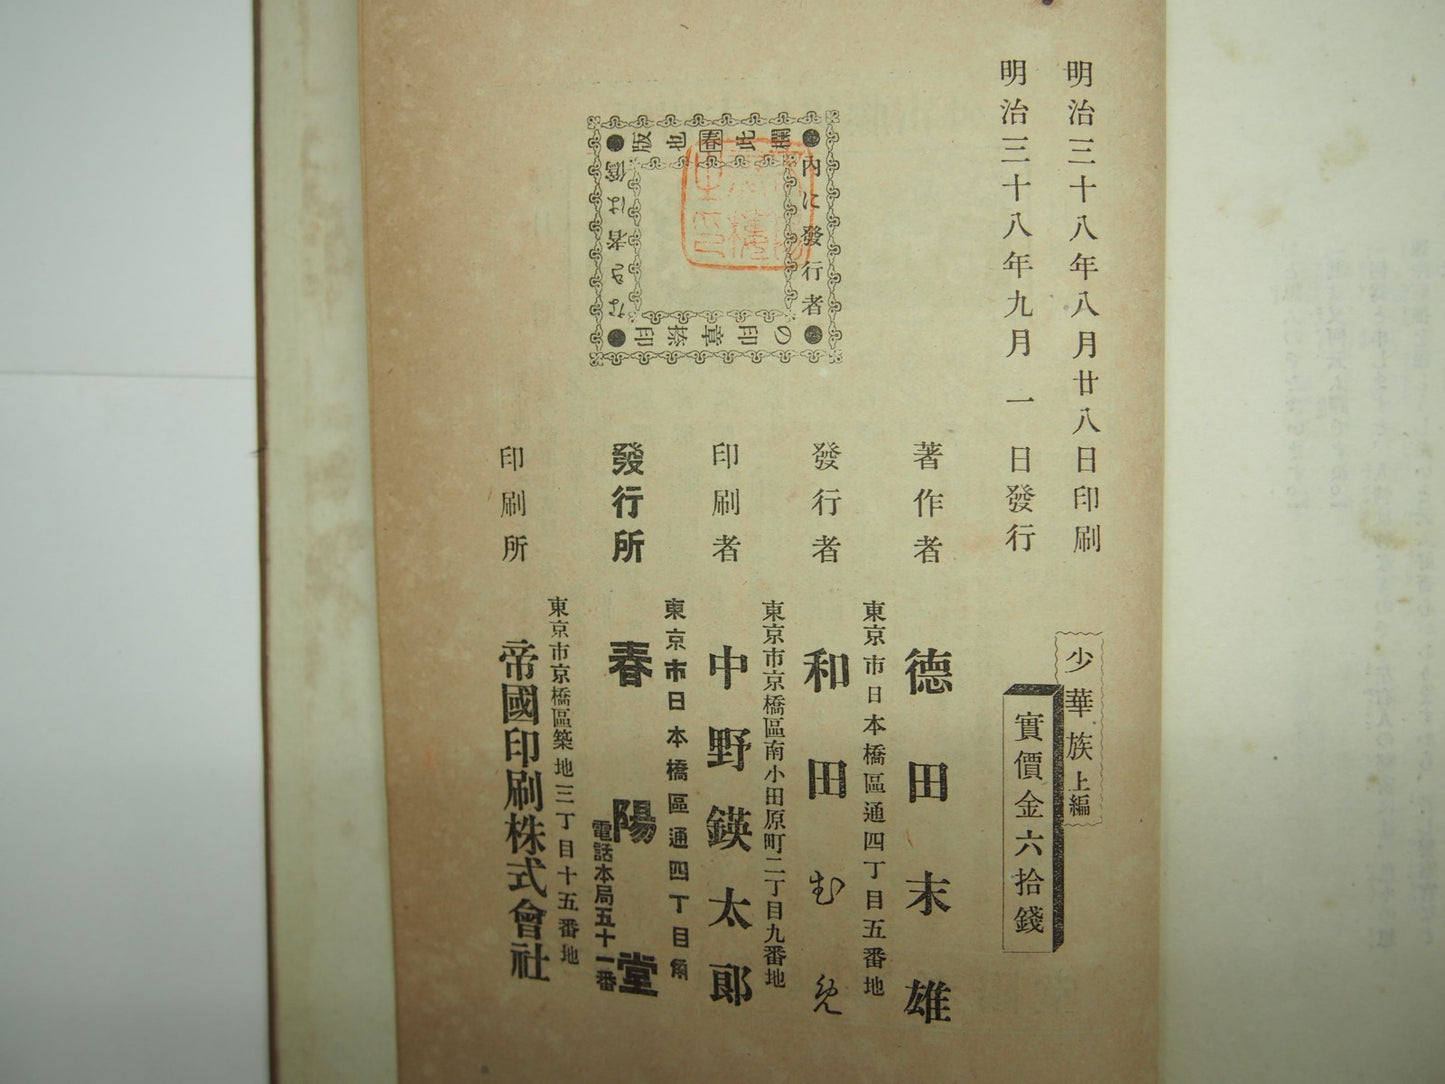 明治三十八年八月廿八日印刷
明治三十八年九月一日發行
少華族上編
實價金六拾錢
著作者 德田末雄
東京市日本橋區通四丁目五番地
發行者 和田む免
東京市京橋區南小田原町二丁目九番地
印刷者 中野鍈太郎
東京市日本橋區通四丁目角
發行所 春陽堂
電話本局五十一番
東京市京橋區築地三丁目十五番地
印刷所 帝國印刷株式會社
內に發行者
の印章捺印
なき者は僞
版也春此